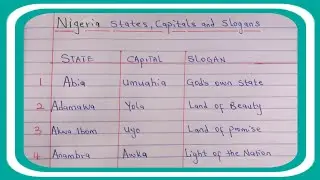 Nigeria States, Capitals and Slogans
STATE CAPITAL SLOGAN
1 Abia Umuahia God's own state
2 Adamawa Yola Land of Beauty
3 Akwa Ibom Uyo Land of promise
4 Anambra Awka Light of the Nation